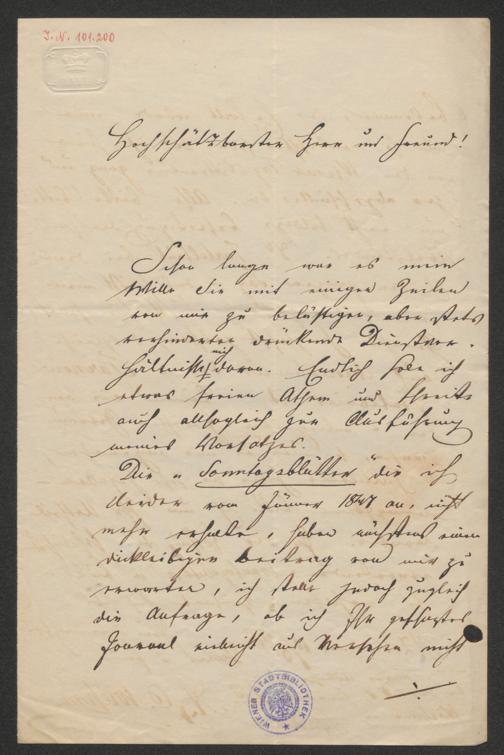 J. N. 101.200
Hochschätzbarster Herr und Freund!
Schon lange war es mein
Wille Sie mit einigen Zeilen
von mir zu belästigen, aber stets
verhinderten drückende Dienstver-
hältnisse mich davon. Endlich hole ich
etwas freien Athem und schreite
auch allsogleich zur Ausführung
meines Vorsatzes.
Die „Sonntagsblätter" die ich
leider vom Jänner 1847 an, nicht
mehr erhalte, haben nächstens einen
dickleibigen Beitrag von mir zu
erwarten, ich stelle jedoch zugleich
die Anfrage, ob ich Ihr geschätztes
Journal vielleicht aus Versehen nicht
WIENER STADTBIBLIOTHEK